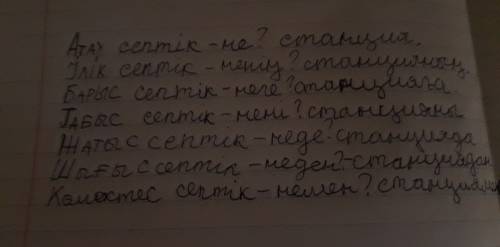 Атау септік - не? станция.
Ілік септік - ненің? станцияның.
Барыс септік - неге? станцияға.
Табыс септік - нені? станцияны
Жатыс септік - неде? станцияда
Шығыс септік - неден? - станциядан
Көмектес септік - немен?